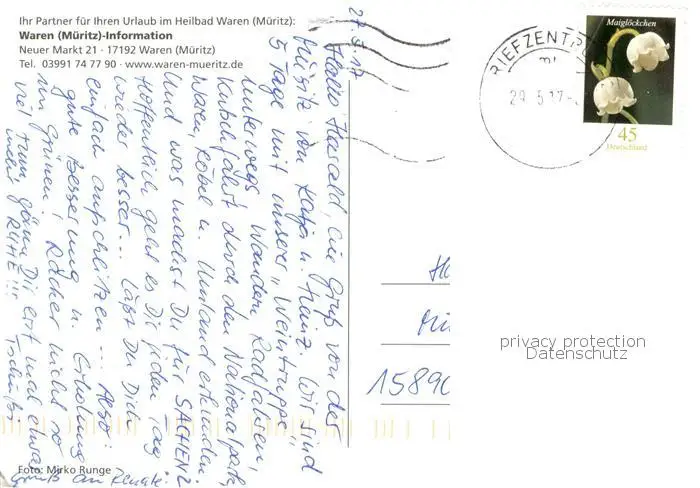 Ihr Partner für Ihren Urlaub im Heilbad Waren (Müritz):
Waren (Müritz)-Information
Neuer Markt 21 · 17192 Waren (Müritz)
Tel. 03991 74 77 90 · www.waren-mueritz.de
27.5.17
Hallo Harald, ein Gruß von der
Müritz von Katja u. Heinz. Wir sind
5 Tage mit unserer „Weintruppe"
unterwegs. Wandern, Radfahren,
Kutschfahrt durch den Nationalpark,
Waren, Röbel u. Umland erkunden.
Und was machst Du für SACHEN?
Hoffentlich geht es Dir jeden Tag
wieder besser... Läßt Du Dich
einfach aufschlitzen... Also:
gute Besserung u. Erholung
im Grünen.
viel rum, gönn Dir erst mal etwas
mehr RUHE!!! Tschüß
Gruß an Renate.
Foto: Mirko Runge
BRIEFZENTR
29.5.17
Maiglöckchen
45
Deutschland
15890
privacy protection
Datenschutz